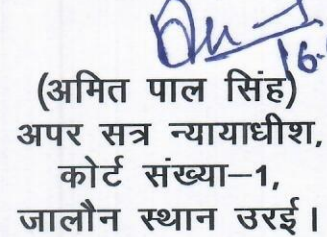 16.
(अमित पाल सिंह)
अपर सत्र न्यायाधीश,
कोर्ट संख्या–1,
जालौन स्थान उरई।